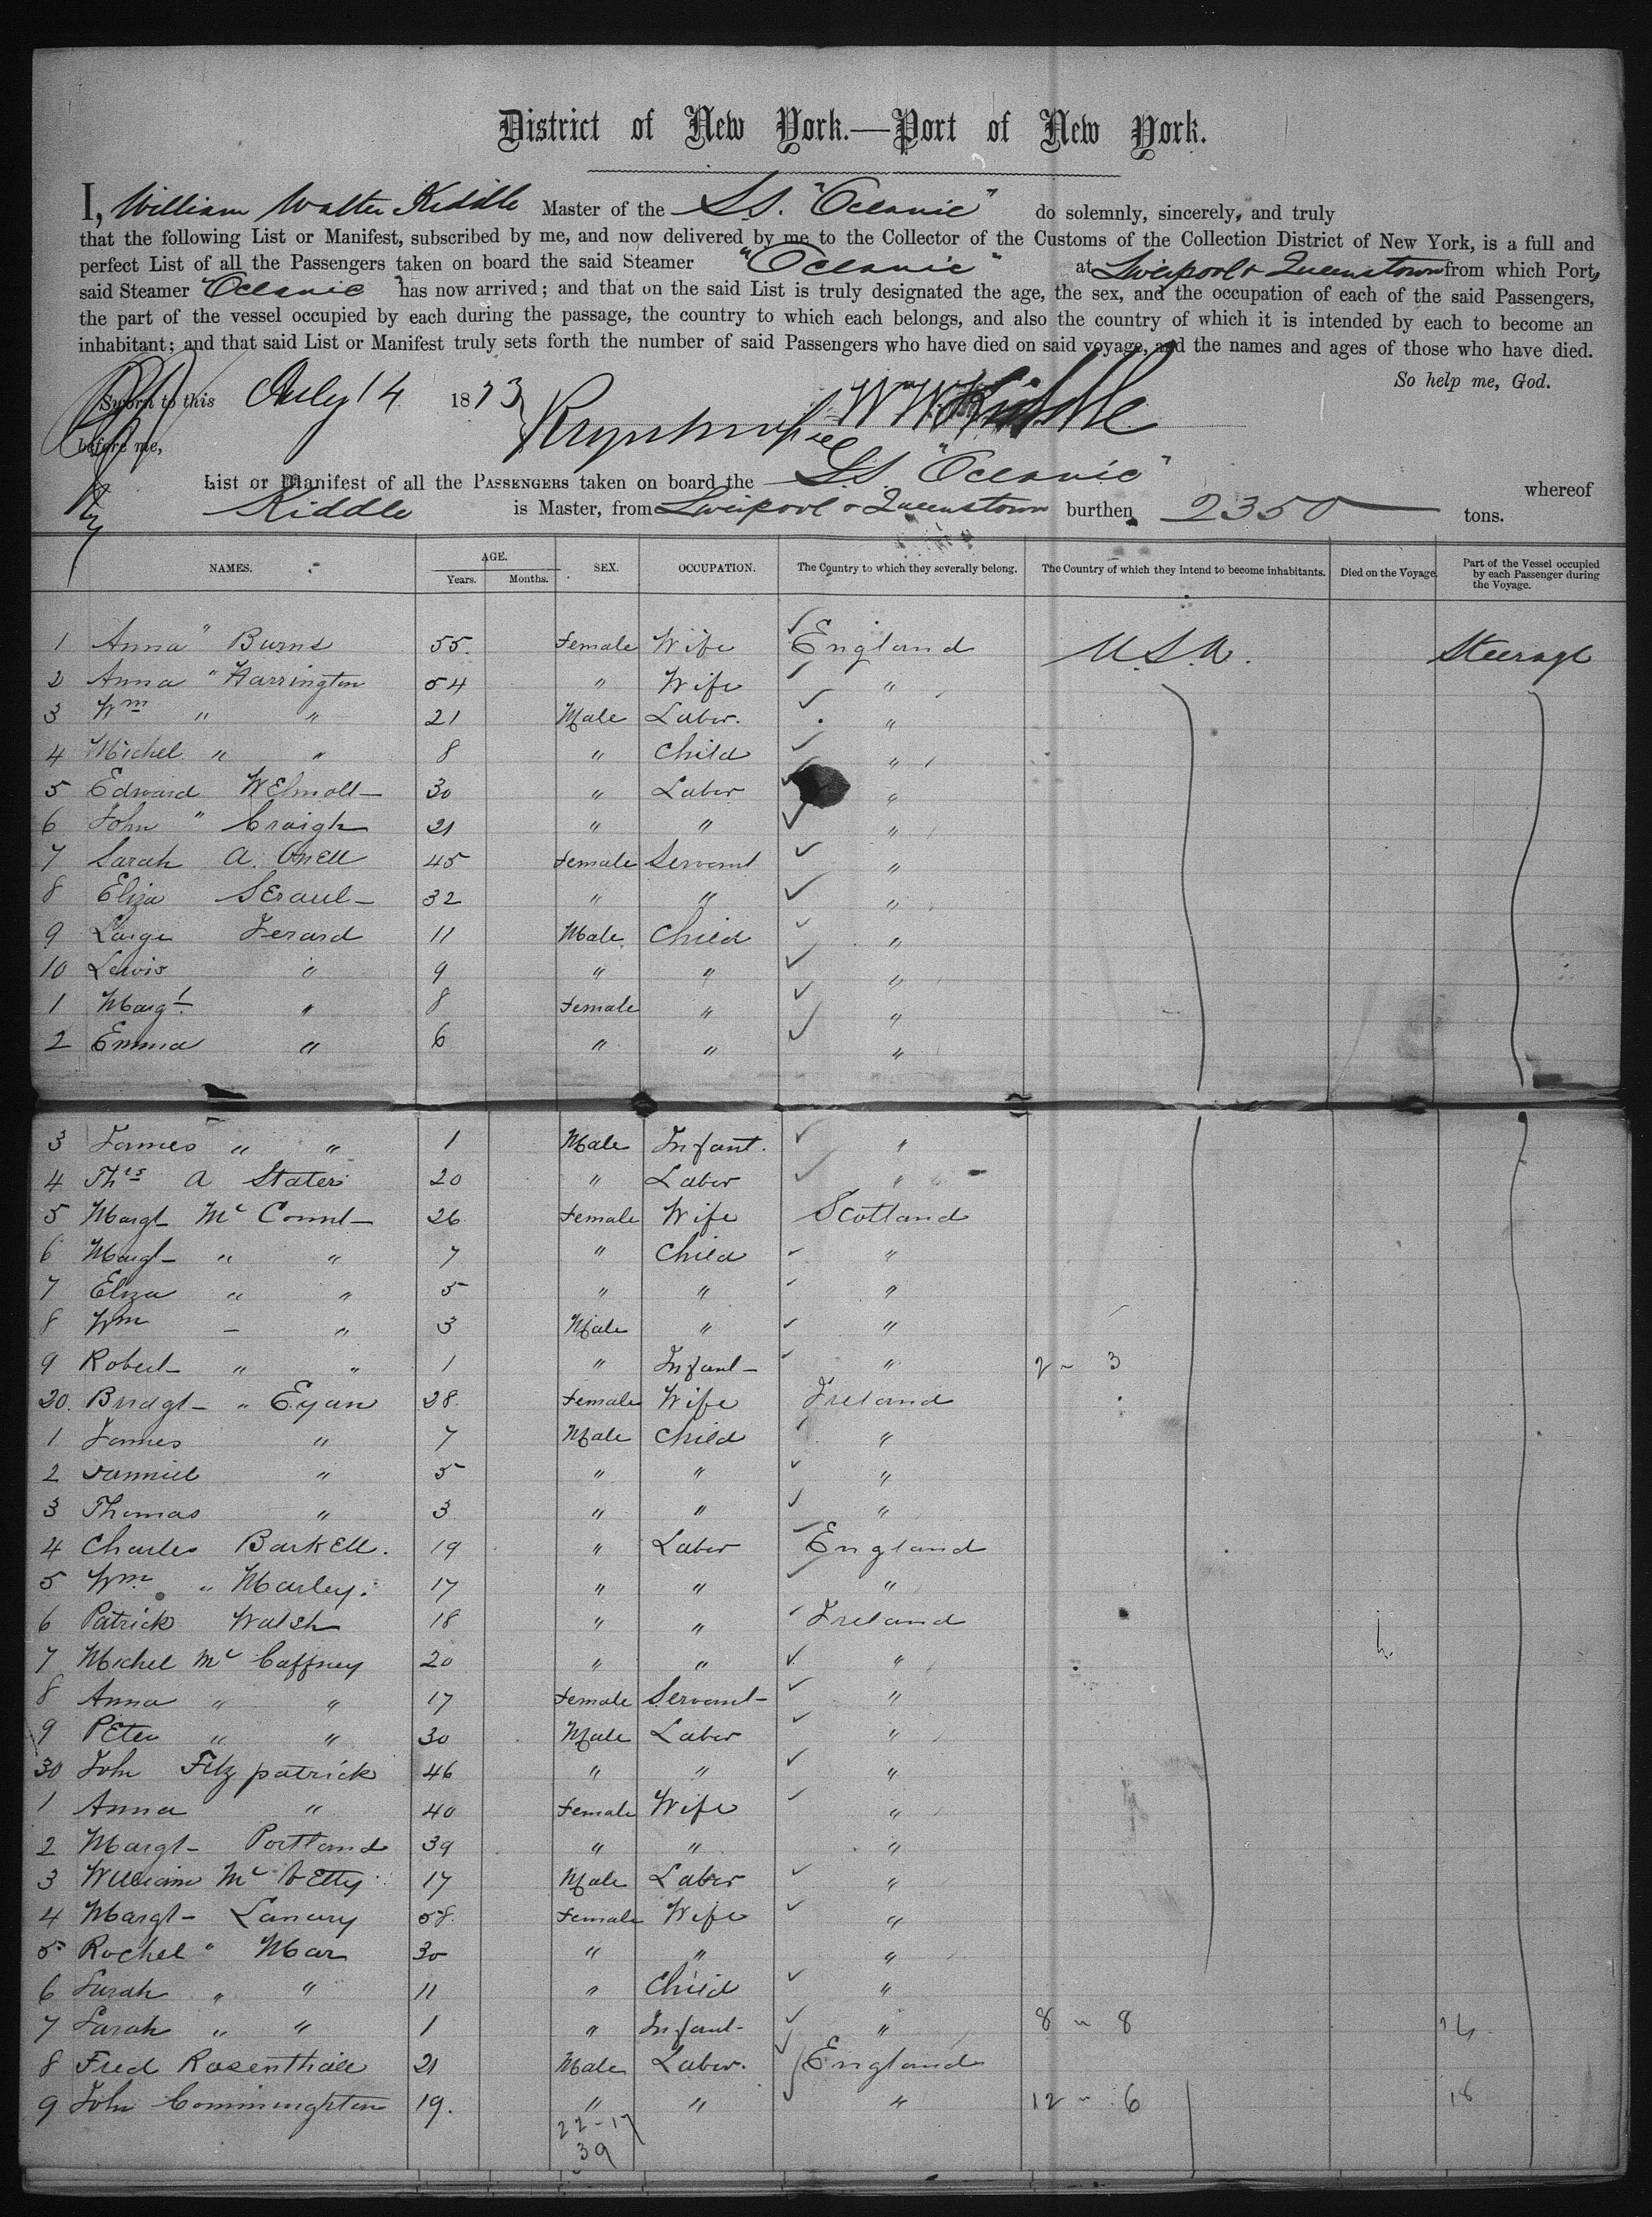 District of New York.—Port of New York.
I, William Walter Kiddle Master of the S.S. "Oceanic" do solemnly, sincerely, and truly
that the following List or Manifest, subscribed by me, and now delivered by me to the Collector of the Customs of the Collection District of New York, is a full and
perfect List of all the Passengers taken on board the said Steamer "Oceanic" at Liverpool & Queenstown from which Port,
said Steamer "Oceanic" has now arrived; and that on the said List is truly designated the age, the sex, and the occupation of each of the said Passengers,
the part of the vessel occupied by each during the passage, the country to which each belongs, and also the country of which it is intended by each to become an
inhabitant; and that said List or Manifest truly sets forth the number of said Passengers who have died on said voyage, and the names and ages of those who have died.
So help me, God.
Sworn to this July 14 1873 W W Kiddle
before me,
List or Manifest of all the Passengers taken on board the S.S. "Oceanic" whereof
Kiddle is Master, from Liverpool & Queenstown burthen 2350 tons.
NAMES. AGE. Years. Months. SEX. OCCUPATION. The Country to which they severally belong. The Country of which they intend to become inhabitants. Died on the Voyage. Part of the Vessel occupied by each Passenger during the Voyage.
1 Anna " Burns 55. Female Wife England U.S.A. Steerage
2 Anna " Harrington 54 " Wife "
3 Wm " " 21 Male Labor. "
4 Michel " " 8 " Child "
5 Edward 30 " Labor "
6 John " Craigh 21 " " "
7 Sarah A. Onell 45 Female Servant "
8 Eliza 32 " " "
9 Ferard 11 Male Child "
10 Lewis " 9 " " "
1 Margt " 8 Female " "
2 Emma " 6 " " "
3 James " " 1 Male Infant. "
4 Ths A Stater 20 " Labor "
5 Margt Mc Connl 26 Female Wife Scotland
6 Margt " " 7 " Child "
7 Eliza " " 5 " " "
8 Wm - " 3 Male " "
9 Robert " " 1 " Infant " 2 " 3
20. Bridgt " Egan 28. Female Wife Ireland
1 James " 7 Male Child "
2 " 5 " " "
3 Thomas " 3 " " "
4 Charles Barkell. 19 " Labor England
5 Wm " Marley. 17 " " "
6 Patrick Walsh 18 " " Ireland
7 Michel Mc Caffney 20 " " "
8 Anna " " 17 Female Servant "
9 Peter " " 30 Male Labor "
30 John Fitzpatrick 46 " " "
1 Anna " 40 Female Wife "
2 Margt Portland 39 " " "
3 William Mc Vetty 17 Male Labor "
4 Margt Lanury 58. Female Wife "
5 Rachel " Mar 30 " " "
6 Sarah " " 11 " Child "
7 Sarah " " 1 " Infant " 8 " 8 14
8 Fred Rosenthale 21 Male Labor. England
9 John Comminghton 19. " " " 12 " 6 18
22-17
39